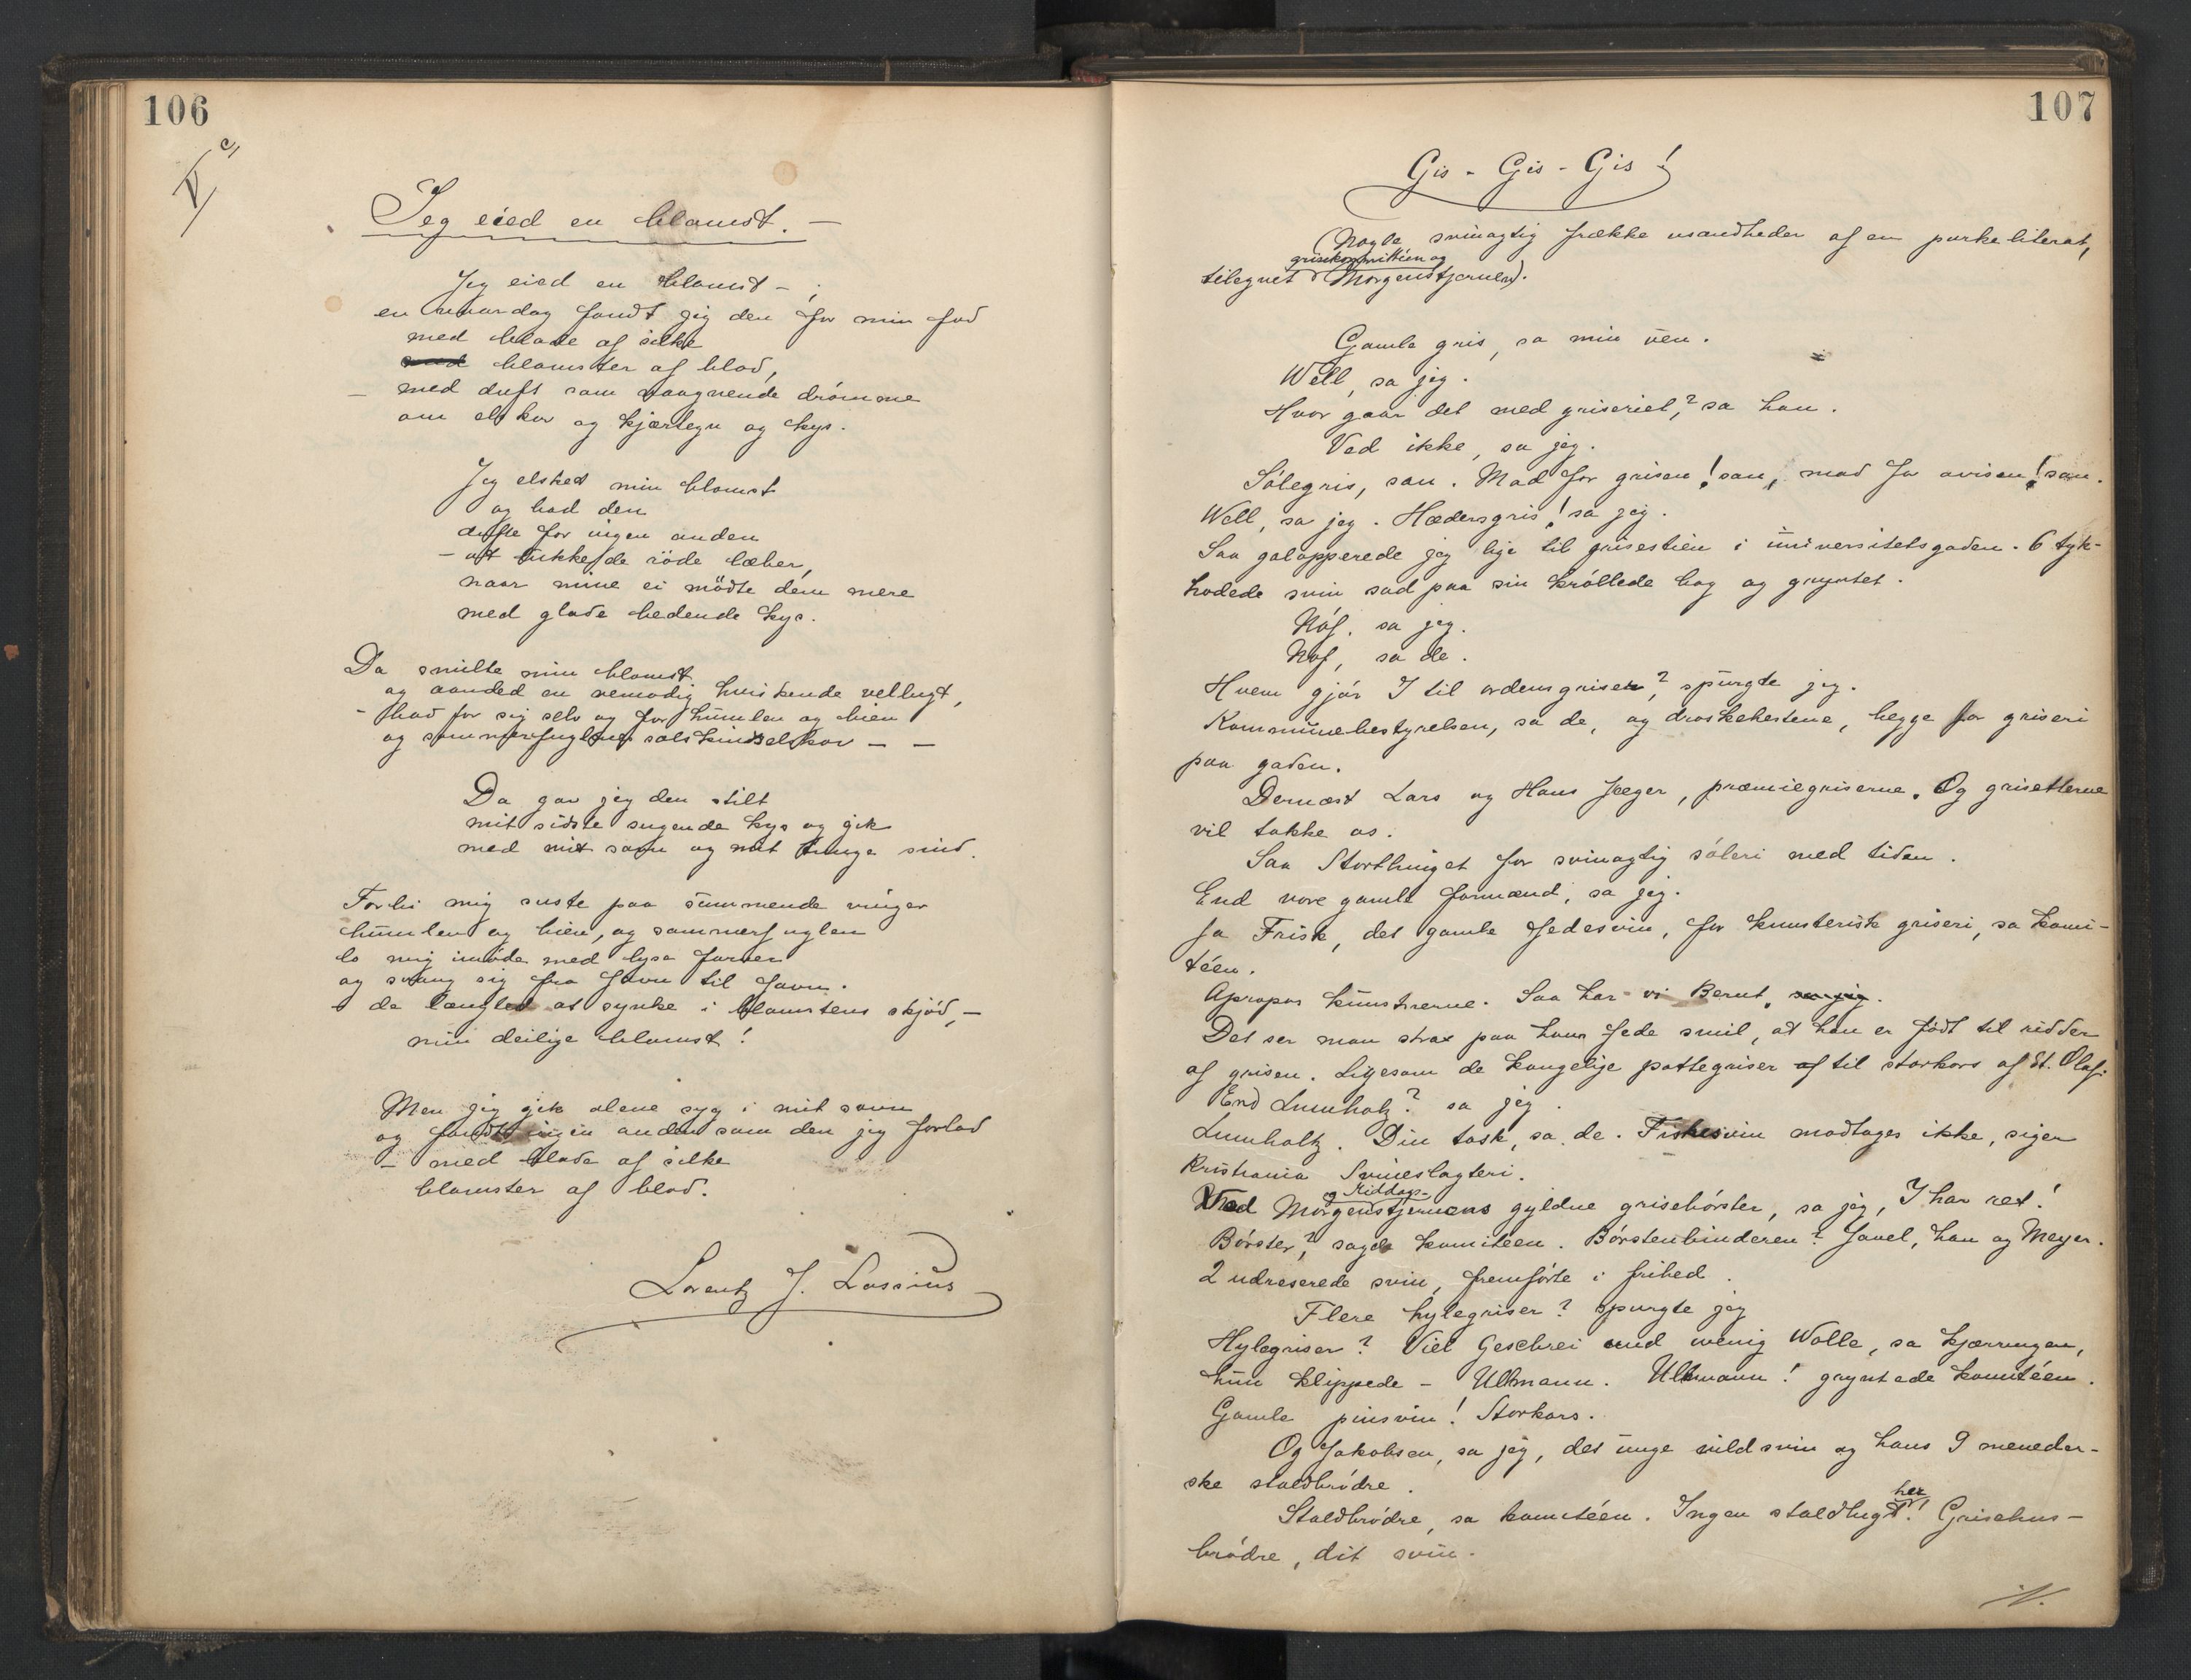 106
Jeg eied en blomst. —
Jeg eied en blomst - ;
en vaardag fandt jeg den for min fod
med blade af silke
med blomster af blod,
- med duft som vaagnende drömme
om elskov og kjærtegn og kys.
Jeg elsked min blomst
og bad den
dufte for ingen anden
- at lukke de röde læber,
naar mine ei mödte dem mere
med glade bedende kys.
Da smilte min blomst
og aanded en vemodig hviskende vellugt,
- bad for sig selv og for humlen og bien
og sommerfuglens solskinselskov — —
Da gav jeg den stilt
mit sidste sugende kys og gik
med mit savn og mit tunge sind.
Forbi mig suste paa summende vinger
humlen og bien, og sommerfuglen
lo mig imöde med lyse farver
og svang sig fra favn til favn.
- de længted at synke i blomstens skjöd, -
min deilige blomst!
Men jeg gik alene syg i mit savn
og fandt ingen anden som den jeg forlod
- med blade af silke
blomster af blod.
Lorentz J. Lossius
107
Gis - Gis - Gis!
(Nogle svinagtig frække usandheder af en purkeliterat,
grisekomittéen og
tilegnet Morgenstjernen).
Gamle gris, sa min ven.
Well, sa jeg.
Hvor gaar det med griseriet,? sa han.
Ved ikke, sa jeg.
Sölegris, san. Mad for grisen! san, mad for avisen! san.
Well, sa jeg. Hædersgris! sa jeg.
Saa galopperede jeg lige til grisestien i universitetsgaden. 6 tyk-
hodede svin sad paa sin kröllede bag og gryntet.
Nöf, sa jeg.
Nöf, sa de.
Hvem gjör I til ordensgriser,? spurgte jeg.
Kommunebestyrelsen, sa de, og droskehestene, begge for griseri
paa gaden.
Dernæst Lars og Hans Jæger, præmiegriserne. Og grisetterne
vil takke os.
Saa Storthinget for svinagtig söleri med tiden.
End vore gamle formænd, sa jeg.
Ja Frisk, det gamle fedesvin, for kunsterisk griseri, sa komi-
téen.
Apropos kunstnerne. Saa har vi Bernt, sa jeg.
Det ser man strax paa hans fede smil, at han er födt til ridder
af grisen. Ligesom de kongelige pattegriser af til storkors af St. Olaf.
End Lumholtz? sa jeg.
Lumholtz. Din tosk, sa de. Fiskesvin modtages ikke, siger
Kristiania Svineslagteri.
og Middags-
Ved Morgenstjernens gyldne griseбörster, sa jeg, I har ret!
Börster,? sagde komitéen. Börstenbinderen? Javel, han og Meyer.
2 udreserede svin, fremförte i frihed.
Flere hylegriser? spurgte jeg
Hylegriser? Viel Geschrei und wenig Wolle, sa kjærringen,
hun klippede - Ullmann. Ullmann! gryntede komitéen.
Gamle pinsvin! Storkors.
Og Jakobsen, sa jeg, det unge vildsvin og hans 9 meneder-
ske staldbrödre.
Staldbrödre, sa komitéen. Ingen staldlugt her! Grisehus-
brödre, dit svin.